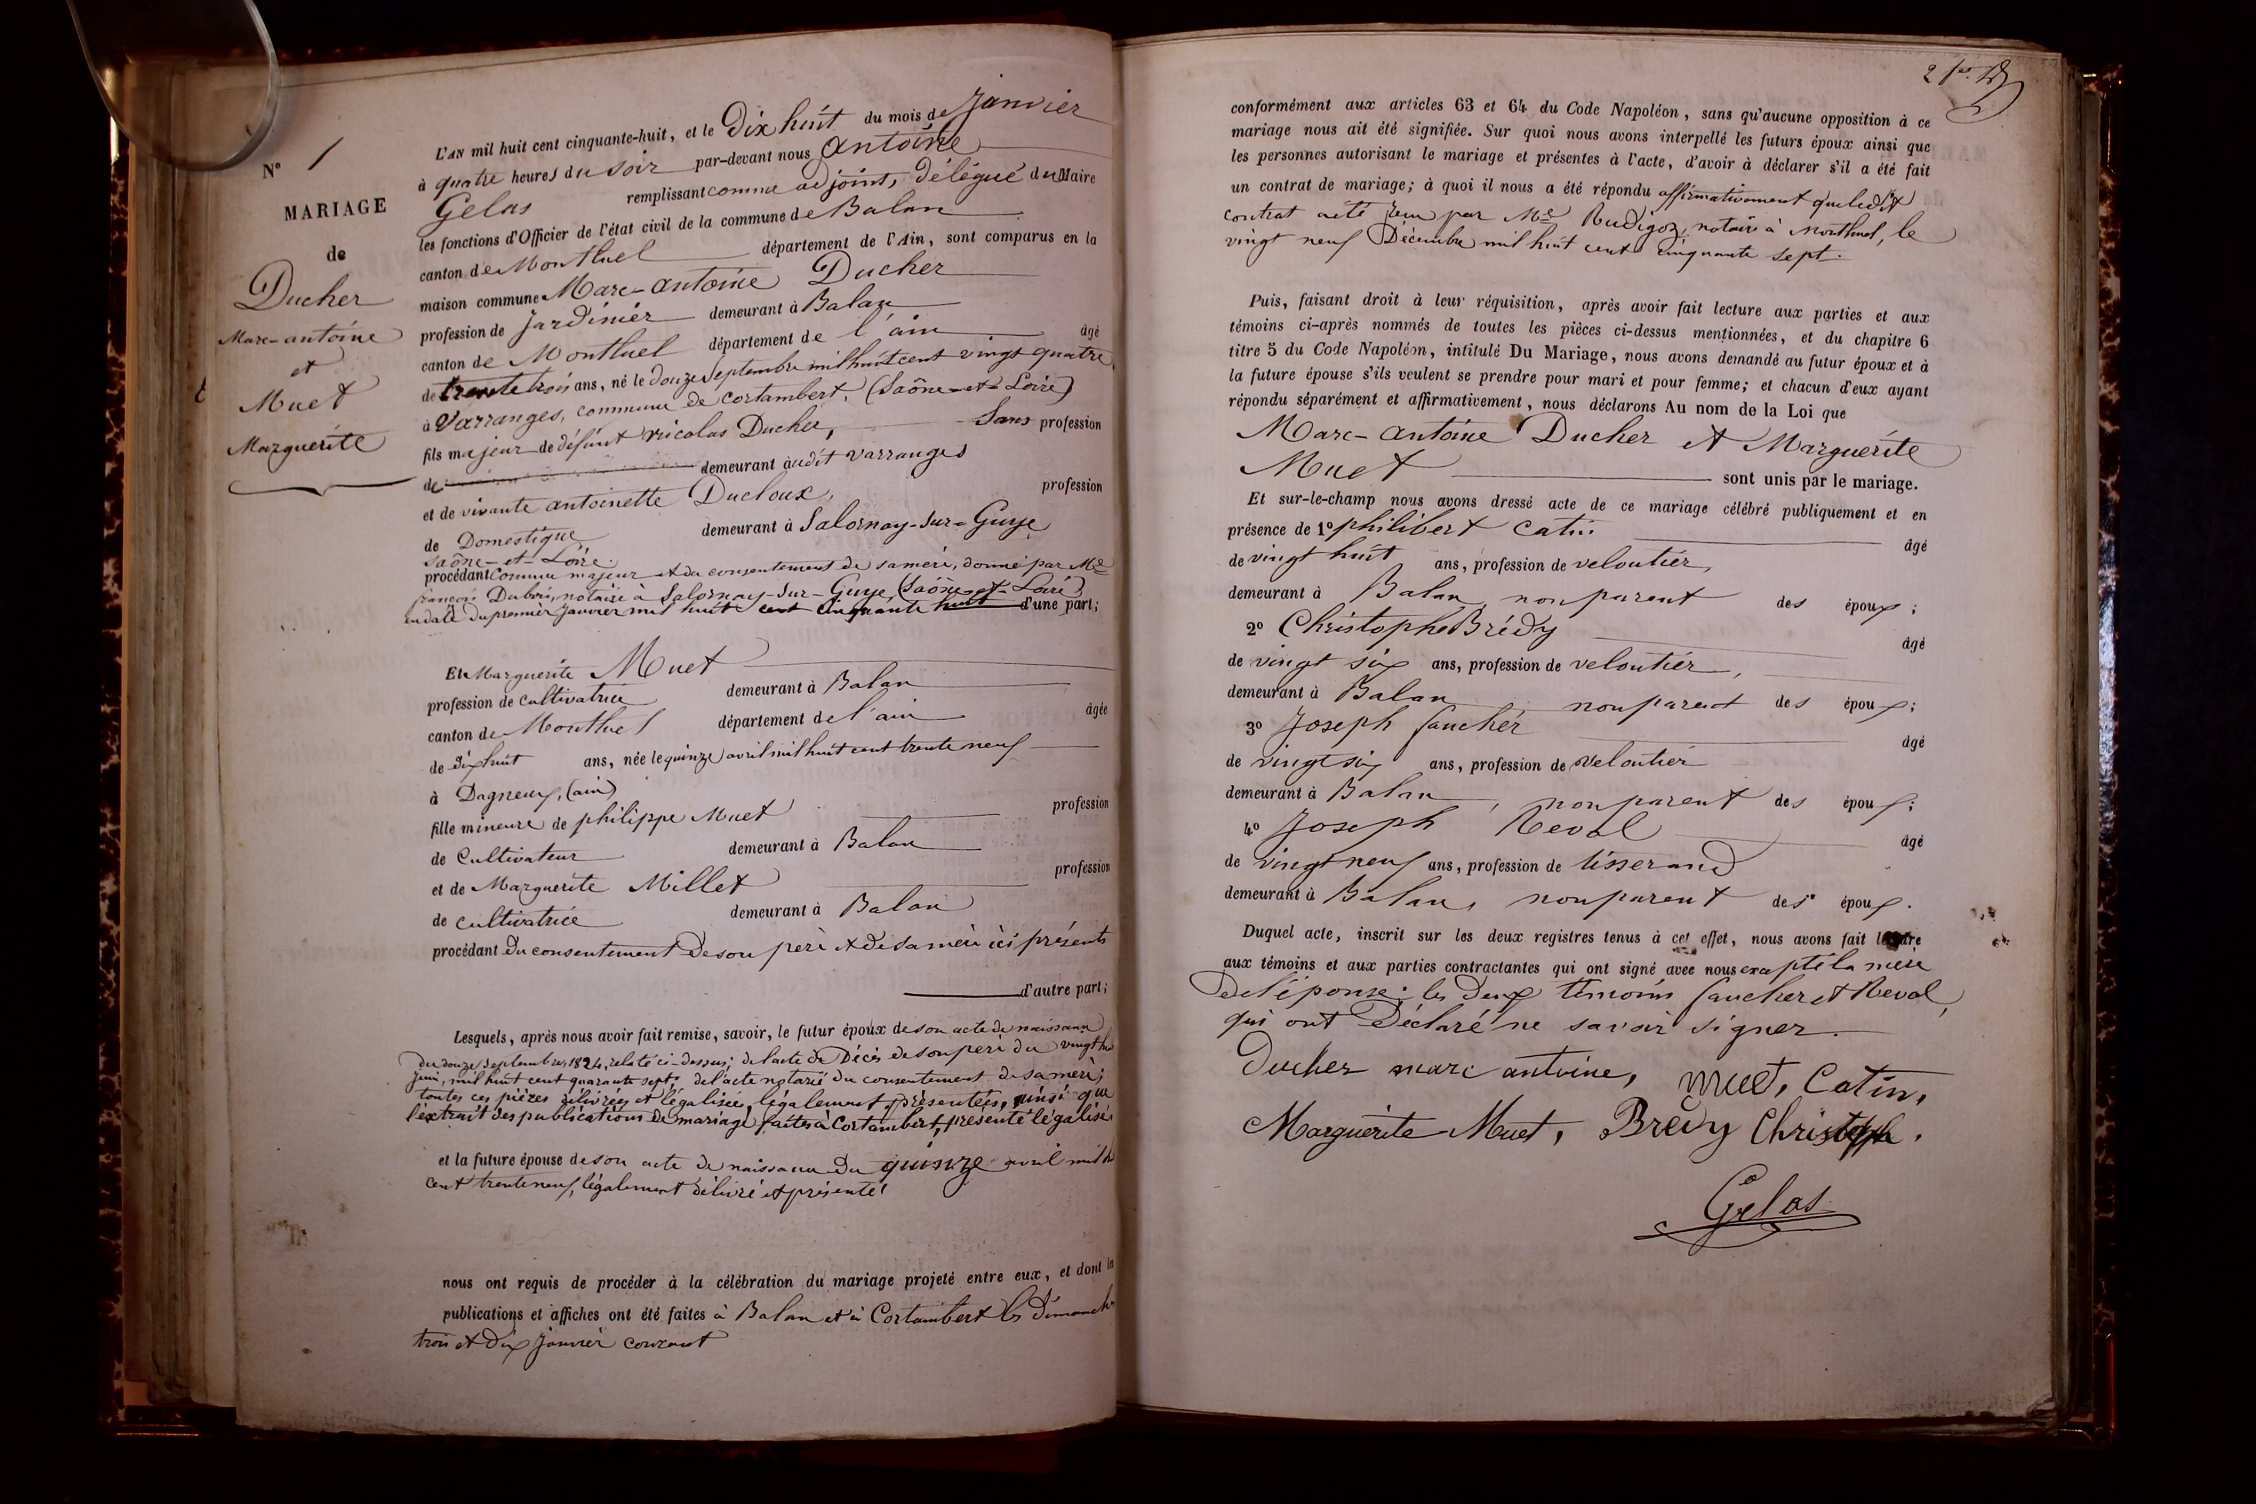 N° 1
MARIAGE
de
Ducher
Marc-antoine
et
Muet
Marguerite
L'AN mil huit cent cinquante-huit, et le Dix huit du mois de Janvier
à quatre heures du soir par-devant nous antoine
Gelas remplissant comme adjoint, délégué du Maire
les fonctions d'Officier de l'état civil de la commune de Balan
canton de Montluel département de l'Ain, sont comparus en la
maison commune Marc-antoine Ducher
profession de Jardinier demeurant à Balan
canton de Montluel département de l'ain âgé
de trente trois ans, né le douze Septembre mil huit cent vingt quatre
à Varranges, commune de cortambert, (Saône-et-Loire)
fils majeur de défunt nicolas Ducher, Sans profession
de demeurant audit varranges
et de vivante antoinette Ducloux, profession
de Domestique demeurant à Salornay-Sur-Guye
Saône-et-Loire
procédant comme majeur et du consentement de sa mère, donné par Me
françois Dubois, notaire à Salornay-Sur-Guye, (Saône-et-Loire)
en date du premier Janvier mil huit cent cinquante huit d'une part;
Et Marguerite Muet
profession de cultivatrice demeurant à Balan
canton de Montluel département de l'ain âgée
de dix huit ans, née le quinze avril mil huit cent trente neuf
à Dagneux, (ain)
fille mineure de philippe Muet profession
de Cultivateur demeurant à Balan
et de Marguerite Millet profession
de cultivatrice demeurant à Balan
procédant du consentement de son père et de sa mère ici présents
d'autre part;
Lesquels, après nous avoir fait remise, savoir, le futur époux de son acte de naissance
du douze Septembre 1824, relaté ci-dessus; de l'acte de Décès de son père du vingt
Juin, mil huit cent quarante sept; de l'acte notarié du consentement de sa mère;
toutes ces pièces délivrées et légalisées, légalement présentées, ainsi que
l'extrait des publications de mariage faites à Cortambert, présenté légalisé.
et la future épouse de son acte de naissance du quinze avril mil
cent trente neuf, légalement délivré et présenté
nous ont requis de procéder à la célébration du mariage projeté entre eux, et dont
publications et affiches ont été faites à Balan et à Cortambert les dimanches
trois et dix Janvier courant
2
conformément aux articles 63 et 64 du Code Napoléon, sans qu'aucune opposition à ce
mariage nous ait été signifiée. Sur quoi nous avons interpellé les futurs époux ainsi que
les personnes autorisant le mariage et présentes à l'acte, d'avoir à déclarer s'il a été fait
un contrat de mariage; à quoi il nous a été répondu affirmativement que ledit
contrat a été reçu par Me Rudigoz, notaire à Montluel, le
vingt neuf Décembre mil huit cent cinquante sept.
Puis, faisant droit à leur réquisition, après avoir fait lecture aux parties et aux
témoins ci-après nommés de toutes les pièces ci-dessus mentionnées, et du chapitre 6
titre 5 du Code Napoléon, intitulé Du Mariage, nous avons demandé au futur époux et à
la future épouse s'ils veulent se prendre pour mari et pour femme; et chacun d'eux ayant
répondu séparément et affirmativement, nous déclarons Au nom de la Loi que
Marc-antoine Ducher et Marguerite
Muet sont unis par le mariage.
Et sur-le-champ nous avons dressé acte de ce mariage célébré publiquement et en
présence de 1° philibert Catin âgé
de vingt huit ans, profession de veloutier,
demeurant à Balan, non parent des époux;
2° Christophe Brédy âgé
de vingt six ans, profession de veloutier,
demeurant à Balan non parent des époux;
3° Joseph faucher âgé
de vingt six ans, profession de veloutier
demeurant à Balan, non parent des époux;
4° Joseph Reval âgé
de vingt neuf ans, profession de tisserand
demeurant à Balan, non parent des époux.
Duquel acte, inscrit sur les deux registres tenus à cet effet, nous avons fait lecture
aux témoins et aux parties contractantes qui ont signé avec nous excepté la mère
de l'épouse; les deux témoins faucher et Reval,
qui ont Déclaré ne savoir signer.
Ducher marc antoine, muet, Catin,
Marguerite Muet, Brédy Christophe.
Gelas